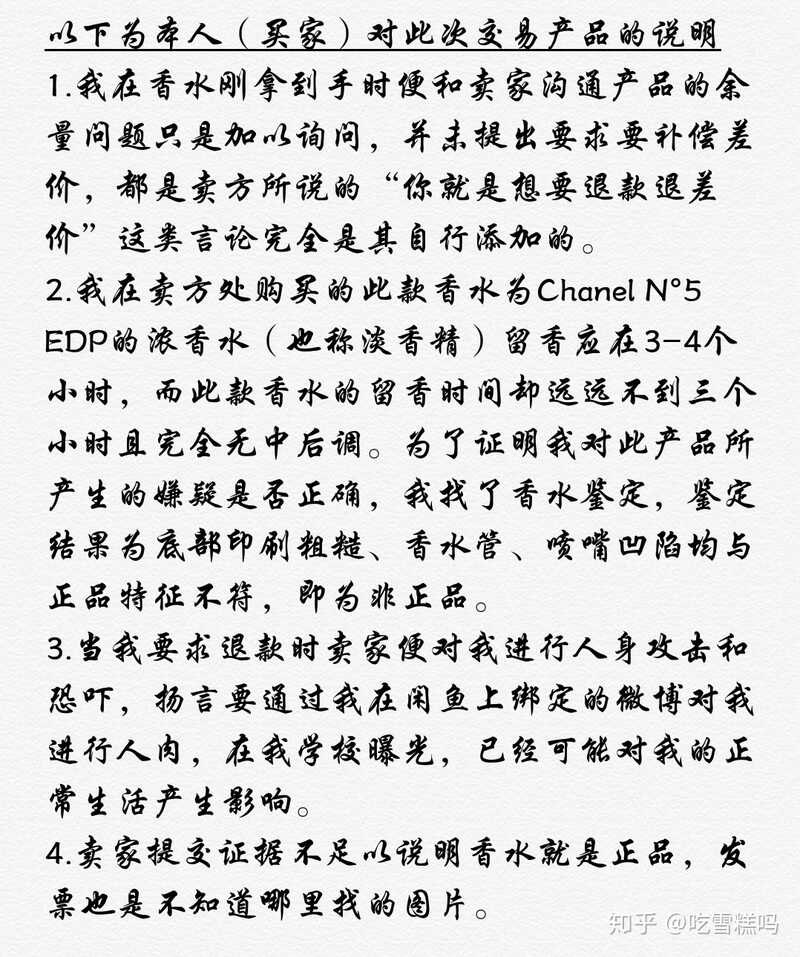 以下为本人（买家）对此次交易产品的说明
1.我在香水刚拿到手时便和卖家沟通产品的余
量问题只是加以询问，并未提出要求要补偿差
价，都是卖方所说的“你就是想要退款退差
价”这类言论完全是其自行添加的。
2.我在卖方处购买的此款香水为Chanel N°5
EDP的浓香水（也称淡香精）留香应在3-4个
小时，而此款香水的留香时间却远远不到三个
小时且完全无中后调。为了证明我对此产品所
产生的嫌疑是否正确，我找了香水鉴定，鉴定
结果为底部印刷粗糙、香水管、喷嘴凹陷均与
正品特征不符，即为非正品。
3.当我要求退款时卖家便对我进行人身攻击和
恐吓，扬言要通过我在闲鱼上绑定的微博对我
进行人肉，在我学校曝光，已经可能对我的正
常生活产生影响。
4.卖家提交证据不足以说明香水就是正品，发
票也是不知道哪里找的图片。
知乎 @吃雪糕吗